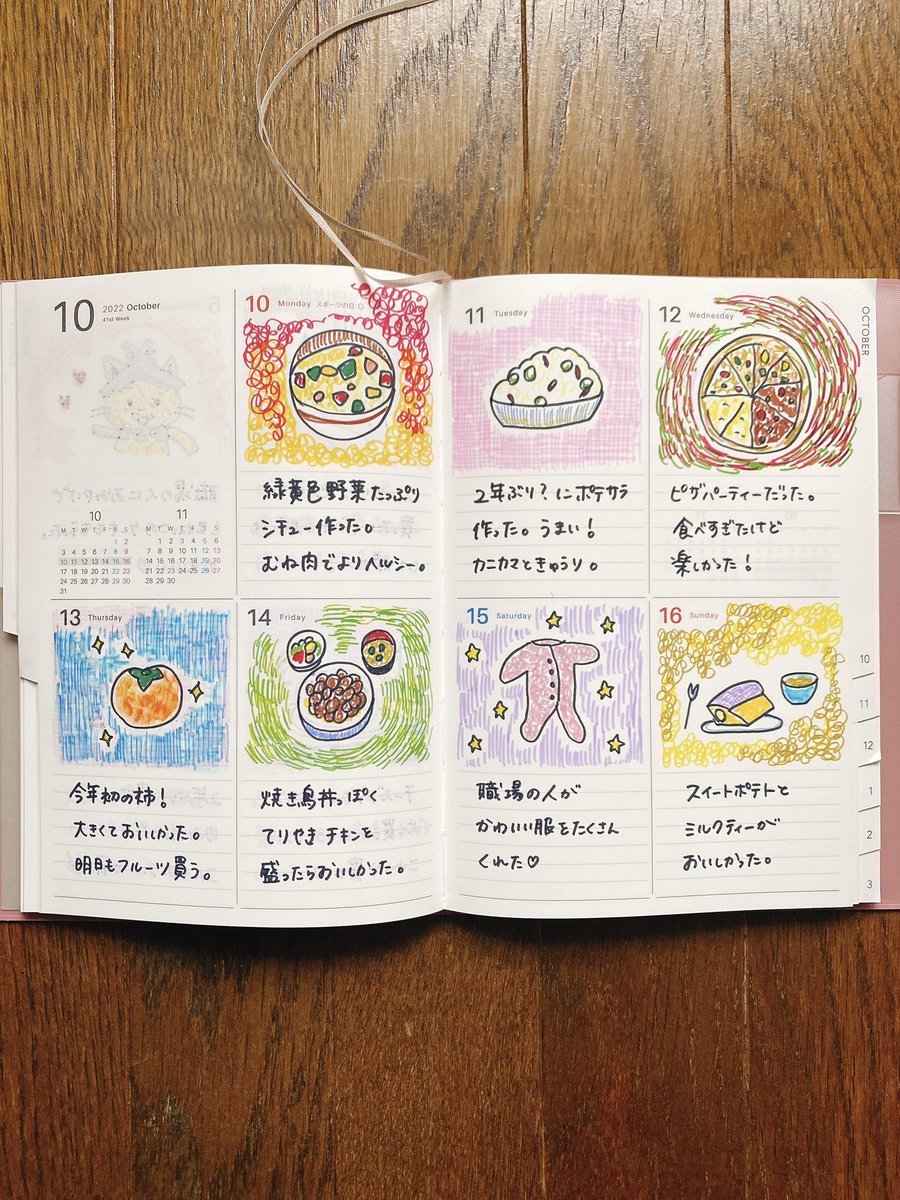 10
2022 October
41st Week
10
M T W T F S S
1 2
3 4 5 6 7 8 9
10 11 12 13 14 15 16
17 18 19 20 21 22 23
24 25 26 27 28 29 30
31
11
M T W T F S S
1 2 3 4 5 6
7 8 9 10 11 12 13
14 15 16 17 18 19 20
21 22 23 24 25 26 27
28 29 30
10 Monday スポーツの日
緑黄色野菜たっぷり
シチュー作った。
むね肉でよりヘルシー。
11 Tuesday
2年ぶり?にポテサラ
作った。うまい!
カニカマときゅうり。
12 Wednesday
ピザパーティーだった。
食べすぎたけど
楽しかった!
OCTOBER
13 Thursday
今年初の柿!
大きくておいしかった。
明日もフルーツ買う。
14 Friday
焼き鳥丼っぽく
てりやきチキンを
盛ったらおいしかった。
15 Saturday
職場の人が
かわいい服をたくさん
くれた♡
16 Sunday
スイートポテトと
ミルクティーが
おいしかった。
10
11
12
1
2
3